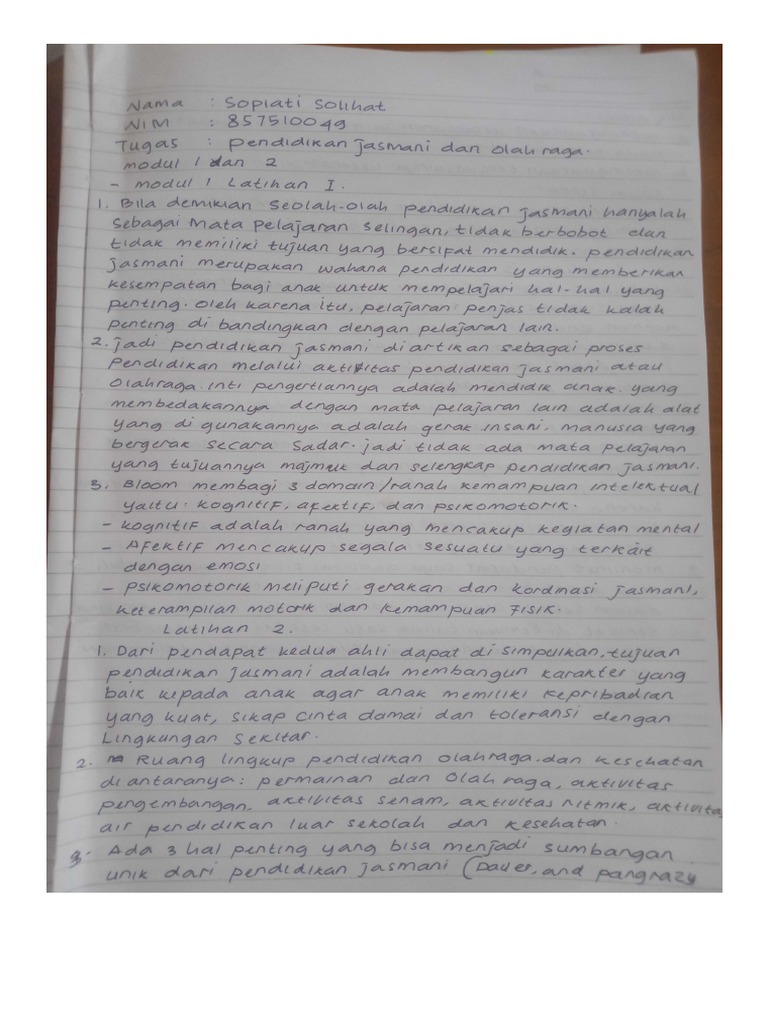 Nama : Sopiati Solihat
NIM : 857510049
Tugas : pendidikan jasmani dan olah raga.
modul 1 dan 2
- modul 1 Latihan I.
1. Bila demikian seolah-olah pendidikan jasmani hanyalah
sebagai Mata pelajaran selingan, tidak berbobot dan
tidak memiliki tujuan yang bersipat mendidik. pendidikan
jasmani merupakan wahana pendidikan yang memberikan
kesempatan bagi anak untuk mempelajari hal-hal yang
penting. oleh karena itu, pelajaran penjas tidak kalah
penting di bandingkan dengan pelajaran lain.
2. jadi pendidikan jasmani di artikan sebagai proses
pendidikan melalui aktivitas pendidikan jasmani atau
olahraga. inti pengertiannya adalah mendidik anak. yang
membedakannya dengan mata pelajaran lain adalah alat
yang di gunakannya adalah gerak insani, manusia yang
bergerak secara sadar. jadi tidak ada mata pelajaran
yang tujuannya majmuk dan selengkap pendidikan jasmani.
3. Bloom membagi 3 domain/ranah kemampuan intelektual
yaitu: kognitif, afektif, dan psikomotorik.
- kognitif adalah ranah yang mencakup kegiatan mental
- Afektif mencakup segala sesuatu yang terkait
dengan emosi
- psikomotorik meliputi gerakan dan kordinasi jasmani,
keterampilan motorik dan kemampuan fisik.
Latihan 2.
1. Dari pendapat kedua ahli dapat di simpulkan, tujuan
pendidikan jasmani adalah membangun karakter yang
baik kepada anak agar anak memiliki kepribadian
yang kuat, sikap cinta damai dan toleransi dengan
Lingkungan sekitar.
2. Ruang lingkup pendidikan olahraga dan kesehatan
di antaranya: permainan dan olah raga, aktivitas
pengembangan, aktivitas senam, aktivitas ritmik, aktivitas
air pendidikan luar sekolah dan kesehatan.
3. Ada 3 hal penting yang bisa menjadi sumbangan
unik dari pendidikan jasmani (Dauer, and pangrazy